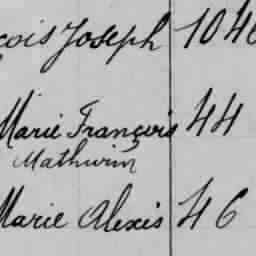 çois Joseph 104
Marie François 44
Mathurin
Marie Alexis 46